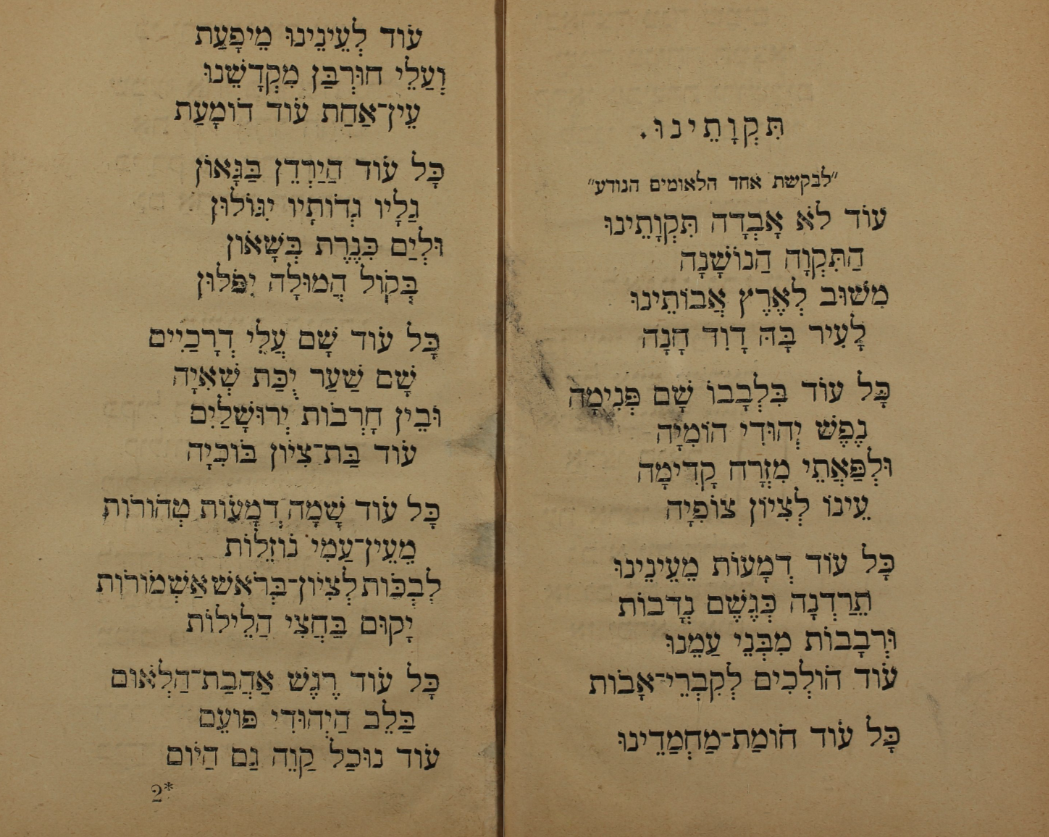 תִּקְוָתֵינוּ.
"לבקשת אחד הלאומים הנודע"
עוֹד לֹא אָבְדָה תִּקְוָתֵינוּ
הַתִּקְוָה הַנּוֹשָׁנָה
מִשּׁוּב לְאֶרֶץ אֲבוֹתֵינוּ
לָעִיר בָּהּ דָּוִד חָנָה
כָּל עוֹד בִּלְבָבוֹ שָׁם פְּנִימָה
נֶפֶשׁ יְהוּדִי הוֹמִיָּה
וּלְפַאֲתֵי מִזְרָח קָדִימָה
עֵינוֹ לְצִיּוֹן צוֹפִיָּה
כָּל עוֹד דְּמָעוֹת מֵעֵינֵינוּ
תֵּרַדְנָה כְּגֶשֶׁם נְדָבוֹת
וּרְבָבוֹת מִבְּנֵי עַמֵּנוּ
עוֹד הוֹלְכִים לְקִבְרֵי־אָבוֹת
כָּל עוֹד חוֹמַת־מַחְמַדֵּינוּ
עוֹד לְעֵינֵינוּ מֵיפָעַת
וַעֲלֵי חוּרְבַּן מִקְדָּשֵׁנוּ
עַיִן־אַחַת עוֹד דוֹמָעַת
כָּל עוֹד הַיַּרְדֵן בְּגָאוֹן
גַלָּיו גְּדוֹתָיו יִגּוֹלוּן
וּלְיַם כִּנֶּרֶת בְּשָׁאוֹן
בְּקוֹל הֲמוּלָה יִפֹּלוּן
כָּל עוֹד שָׁם עֲלֵי דְרָכַיִים
שָׁם שַׁעַר יֻכַּת שְׁאִיָּה
וּבֵין חָרְבוֹת יְרוּשָׁלַיִם
עוֹד בַּת־צִיּוֹן בּוֹכִיָּה
כָּל עוֹד שָׁמָּה דְּמָעוֹת טְהוֹרוֹת
מֵעֵין־עַמִּי נוֹזְלוֹת
לִבְכּוֹת לְצִיּוֹן־בְּרֹאשׁ אַשְׁמוֹרוֹת
יָקוּם בַּחֲצִי הַלֵּילוֹת
כָּל עוֹד רֶגֶשׁ אַהֲבַת־הַלְאוֹם
בְּלֵב הַיְהוּדִי פּוֹעֵם
עוֹד נוּכַל קַוֵּה גַּם הַיּוֹם
2*